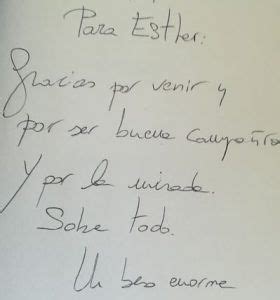 Para Esther:
Gracias por venir y
por ser buena compañera
Y por la mirada.
Sobre todo.
Un beso enorme